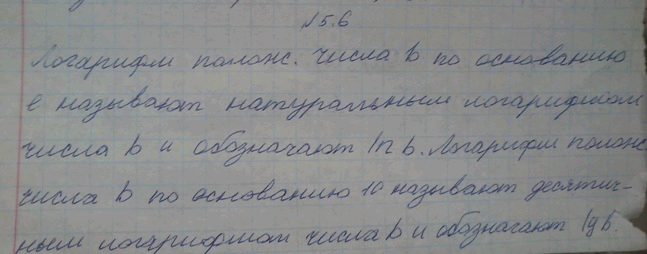 №5.6
Логарифм полож. числа b по основанию
e называют натуральным логарифмом
числа b и обозначают ln b. Логарифм полож.
числа b по основанию 10 называют десятич-
ным логарифмом числа b и обозначают lg b.